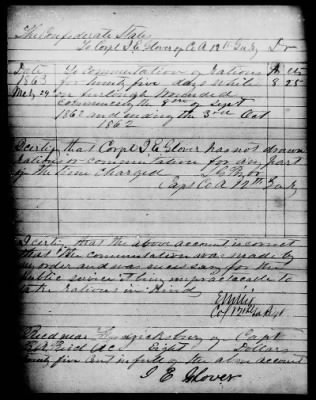 The Confederate States
To Corpl J E Glover of Co A 12th Ga Regt Dr
Date To Commutation of Rations $ cts
1863 for twenty five days while 8 25
on furlough wounded
commencing the 8th of Sept
1862 and ending the 3rd Oct
1862
I certify that Corpl J E Glover has not drawn
rations or commutation for any part
of the time charged
Capt Co A 12th Ga Regt
I certify that the above account is correct
that the commutation was made by
my order and was necessary for the
public service it being impracticable to
take rations in Kind
E Willis
Col 12th Ga Regt
Recd near Fredricksburg of Capt
Eight Dollars
twenty five cents in full of the above account
J E Glover